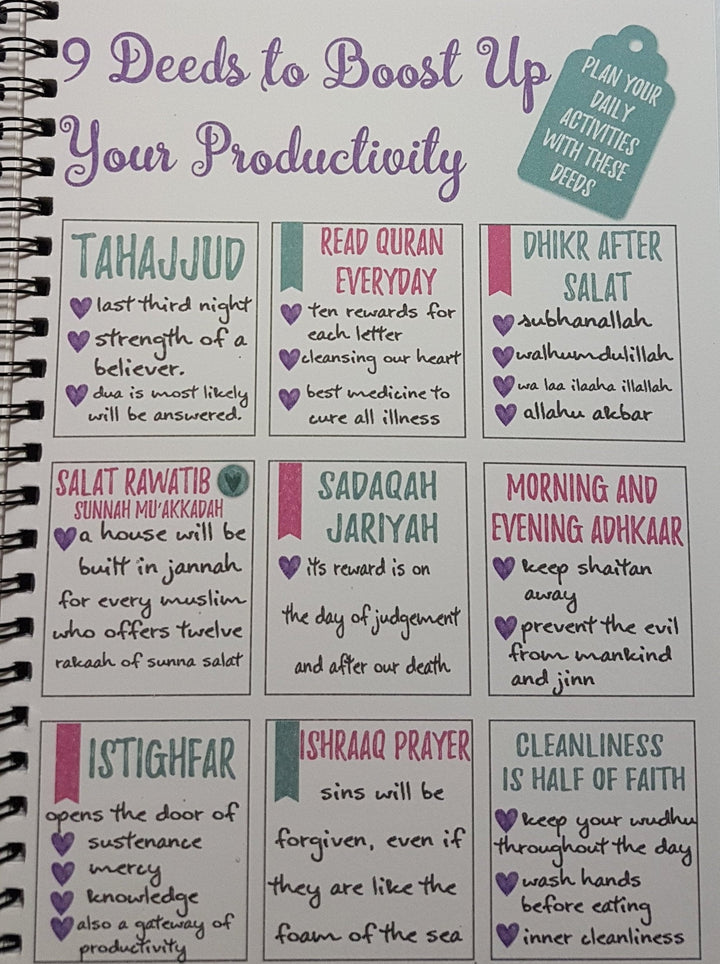 9 Deeds to Boost Up
Your Productivity
PLAN YOUR
DAILY
ACTIVITIES
WITH THESE
DEEDS
TAHAJJUD
last third night
strength of a
believer.
dua is most likely
will be answered.
READ QURAN
EVERYDAY
ten rewards for
each letter
cleansing our heart
best medicine to
cure all illness
DHIKR AFTER
SALAT
subhanallah
walhumdulillah
wa laa ilaaha illallah
allahu akbar
SALAT RAWATIB
SUNNAH MU'AKKADAH
a house will be
built in jannah
for every muslim
who offers twelve
rakaah of sunna salat
SADAQAH
JARIYAH
its reward is on
the day of judgement
and after our death
MORNING AND
EVENING ADHKAAR
keep shaitan
away
prevent the evil
from mankind
and jinn
ISTIGHFAR
opens the door of
sustenance
mercy
knowledge
also a gateway of
productivity
ISHRAAQ PRAYER
sins will be
forgiven, even if
they are like the
foam of the sea
CLEANLINESS
IS HALF OF FAITH
keep your wudhu
throughout the day
wash hands
before eating
inner cleanliness